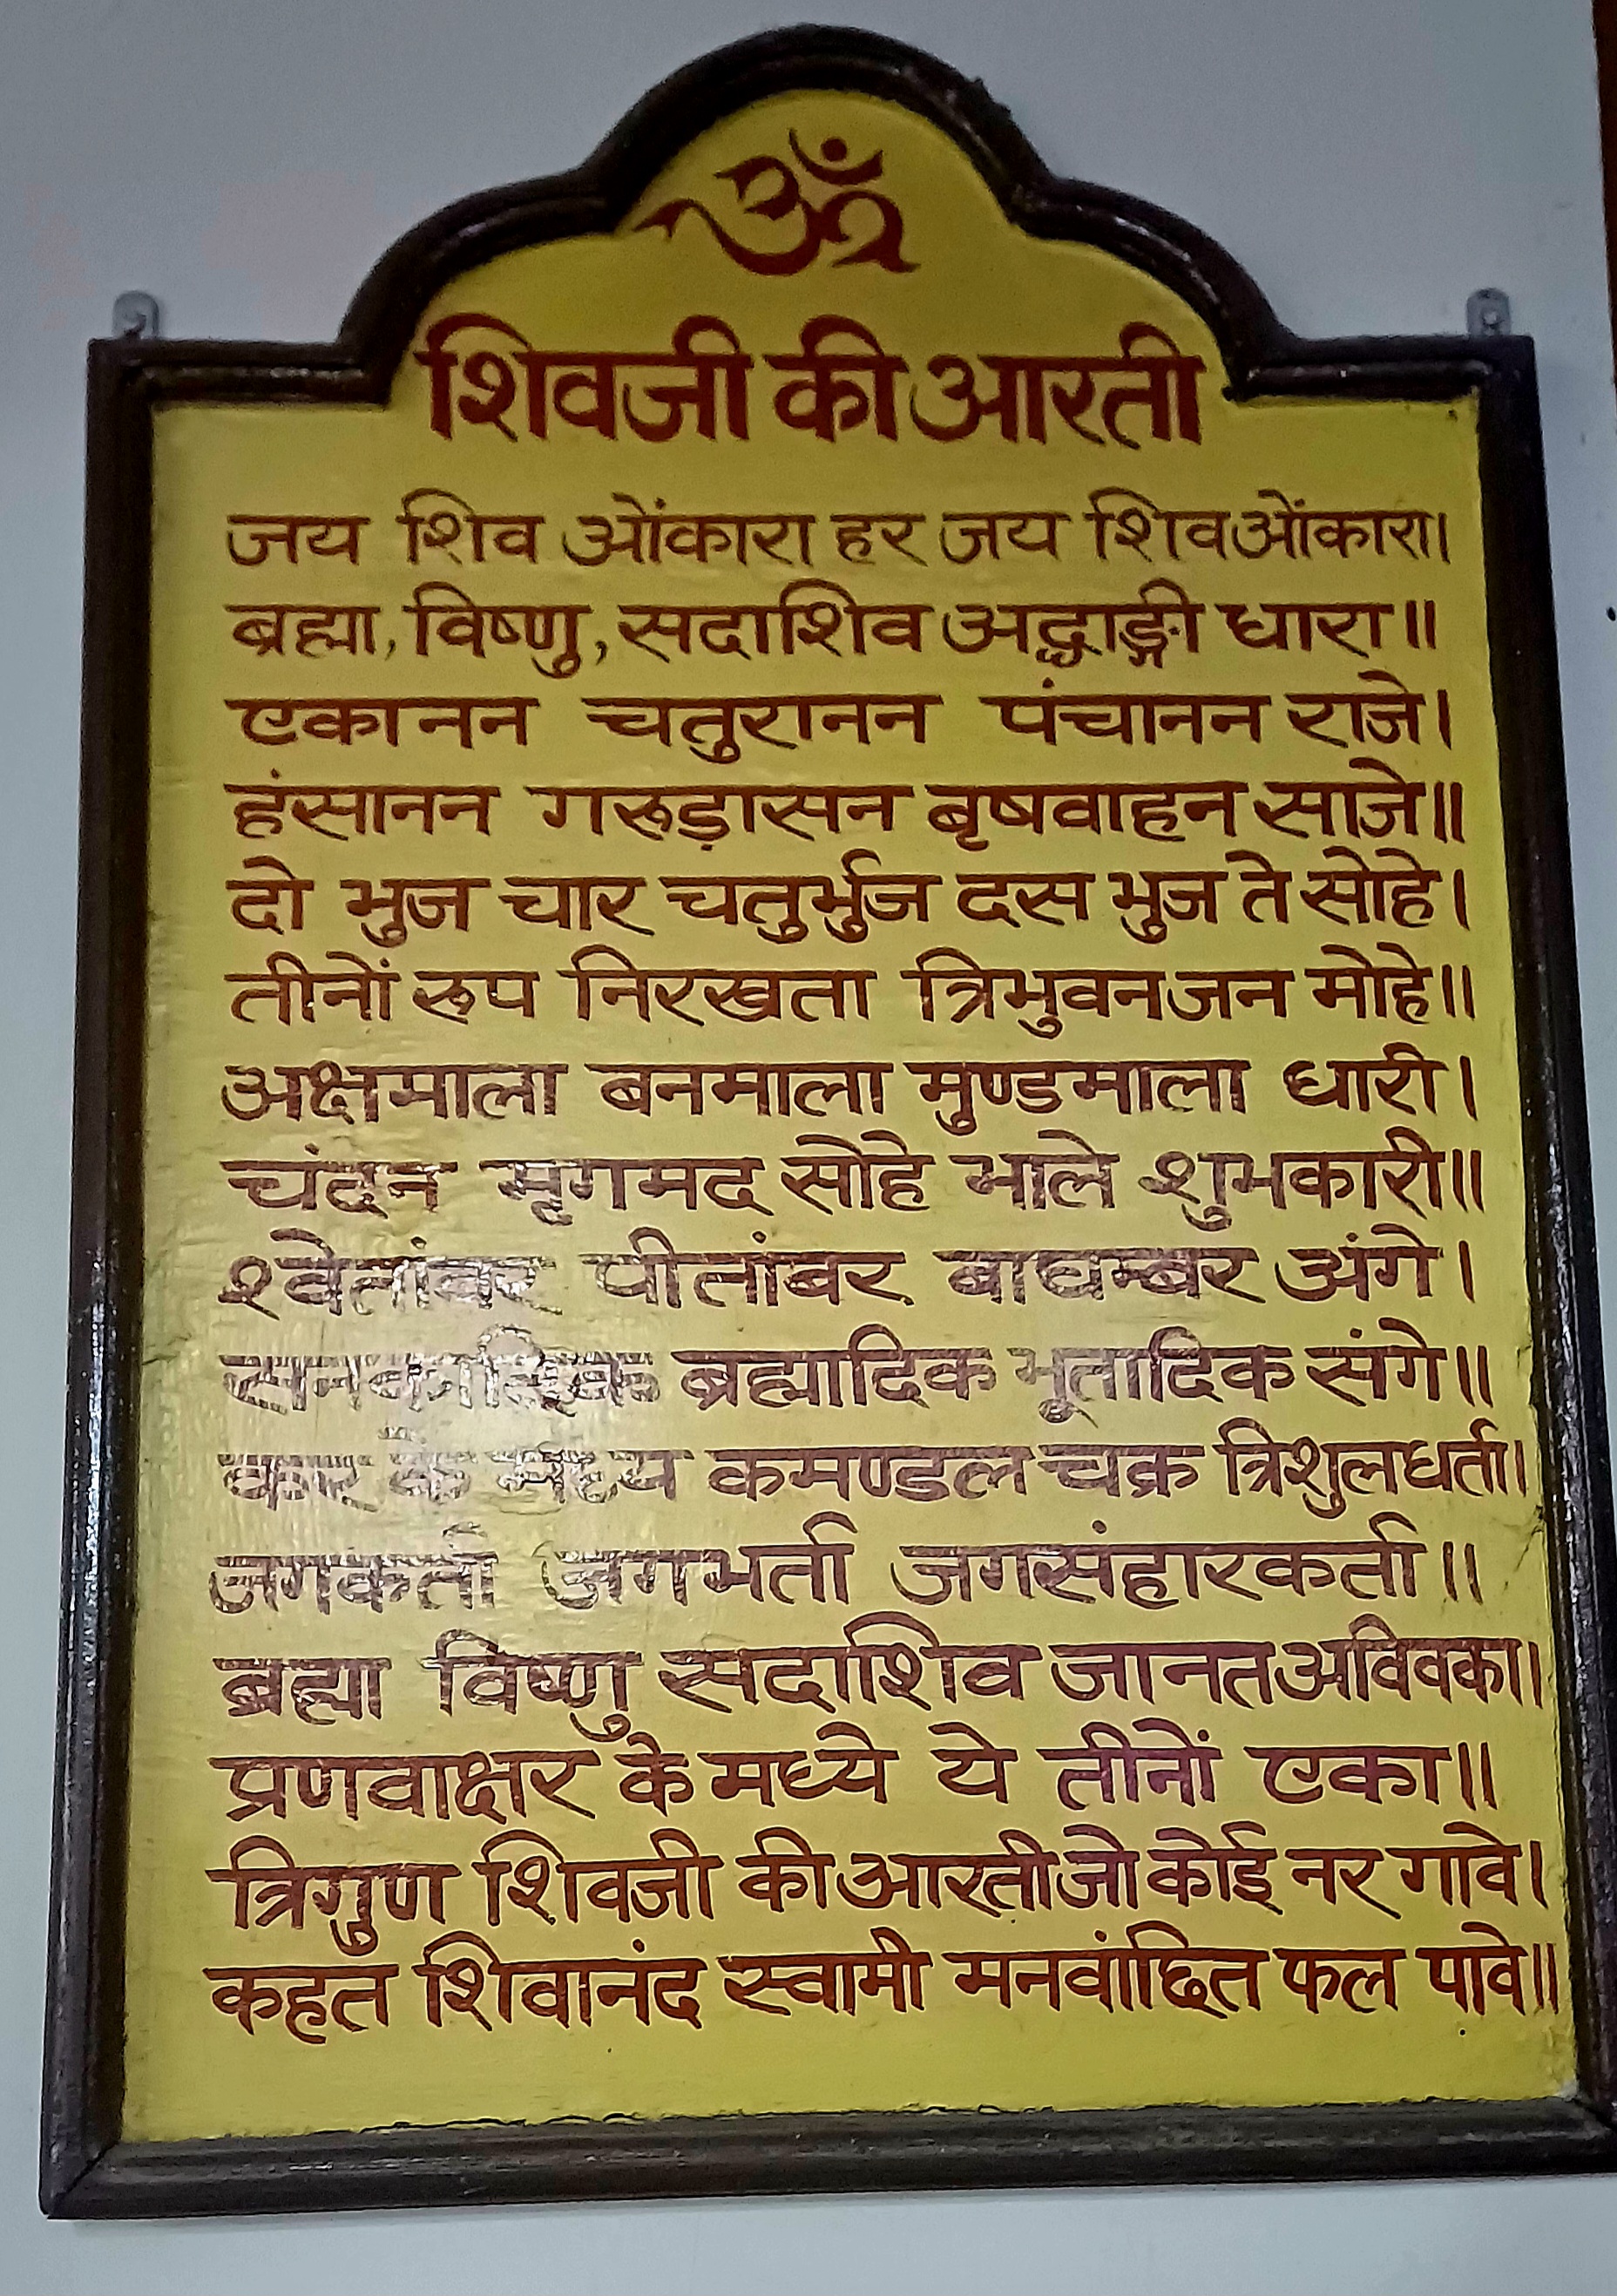 ॐ
शिवजी की आरती
जय शिव ओंकारा हर जय शिव ओंकारा।
ब्रह्मा, विष्णु, सदाशिव अर्द्धाङ्गी धारा॥
एकानन चतुरानन पंचानन राजे।
हंसानन गरूड़ासन बृषवाहन साजे॥
दो भुज चार चतुर्भुज दस भुज ते सोहे।
तीनों रूप निरखता त्रिभुवन जन मोहे॥
अक्षमाला बनमाला मुण्डमाला धारी।
चंदन मृगमद सोहे भाले शुभकारी॥
श्वेतांबर पीतांबर बाघम्बर अंगे।
सनकादिक ब्रह्मादिक भूतादिक संगे॥
कर के मध्य कमण्डल चक्र त्रिशुलधर्ता।
जगकर्ता जगभर्ता जगसंहारकर्ता॥
ब्रह्मा विष्णु सदाशिव जानत अविवका।
प्रणवाक्षर के मध्ये ये तीनों एका॥
त्रिगुण शिवजी की आरती जो कोई नर गावे।
कहत शिवानंद स्वामी मनवांछित फल पावे॥